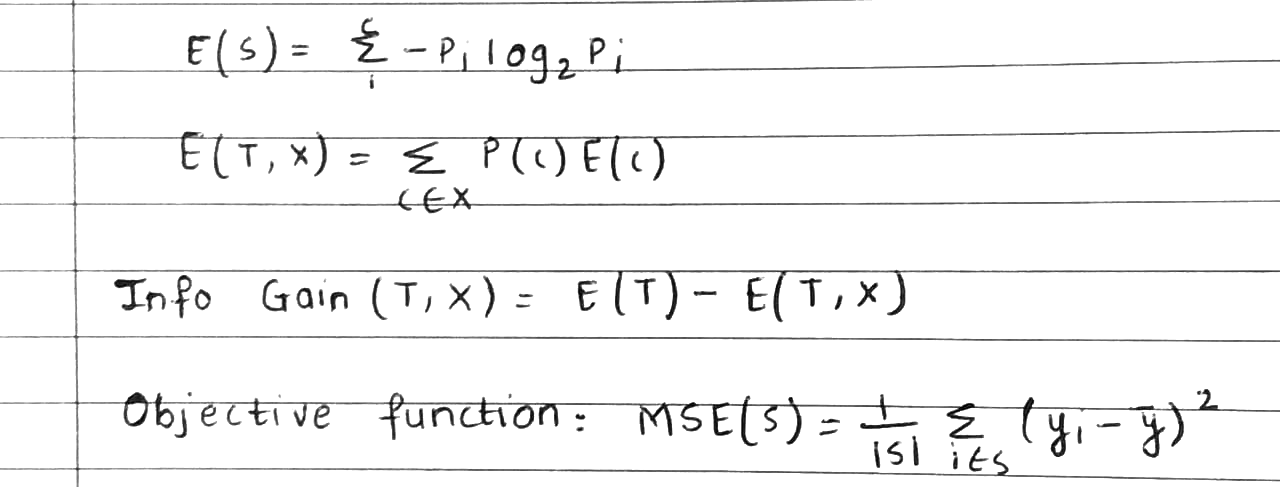 E(S) = Σᵢᶜ -Pᵢ log₂ Pᵢ
E(T, X) = Σ P(c) E(c)
c∈X
Info Gain (T, X) = E(T) - E(T, X)
Objective function: MSE(S) = 1/|S| Σ_{i∈S} (yᵢ - ȳ)²